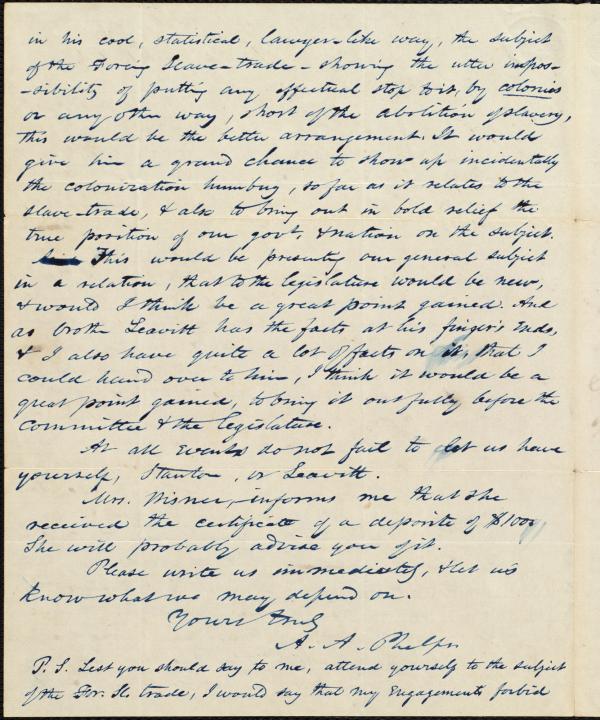 in his cool, statistical, lawyer-like way, the subject
of the Foreig Slave-trade - showing the utter impos-
-sibility of putting any effectual stop to it, by colonies
or any other way, short of the abolition of slavery,
this would be the better arrangement. It would
give him a grand chance to show up incidentally
the colonization humbug, so far as it relates to the
slave-trade, & also to bring out in bold relief the
true position of our govt. & nation on the subject.
This would be presenting our general subject
in a relation, that to the legislature would be new,
& would I think be a great point gained. And
as brother Leavitt has the facts at his finger's ends,
& I also have quite a lot of facts on it, that I
could hand over to him, I think it would be a
great point gained, to bring it out fully before the
Committee & the legislature.
At all events do not fail to let us have
yourself, Stanton, or Leavitt.
Mrs. Wisner, informs me that she
received the certificate of a deposite of $100,
She will probably advise you of it.
Please write us immediately, & let us
know what we may depend on.
Yours truly
A. A. Phelps
P. S. Lest you should say to me, attend yourself to the subject
of the For. Sl. trade, I would say that my engagements forbid